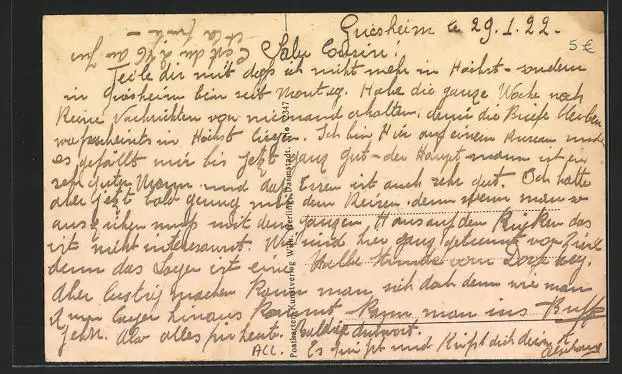 Griesheim le 29.1.22.
5 €
Salu Cousin!
Teile dir mit daß ich nicht mehr in Höchst - sondern
in Griesheim bin seit Montag. Habe die ganze Woche noch
Keine Nachrichten von niemand erhalten, denn die Briefe bleiben
in Höchst liegen. Ich bin Hier auf einem Bureau und
es gefällt mir bis jetzt ganz gut - der Hauptmann ist ein
sehr guter Mann und das Essen ist auch sehr gut. Ich hatte
aber jetzt bald genug mit dem Reisen, denn wenn man so
ausziehen muß mit dem ganzen Haus auf dem Rücken das
ist nicht interessant. Wir sind hier ganz getrennt von Zivil
denn das Lager ist eine Halbe Stunde vom Dorf weg.
Aber lustig machen Kann man sich doch denn wie man
zum Lager hinaus Kommt, Kann man ins Buff
gehn. Also alles für heute. Baldige Antwort.
Es grüßt und Küßt dich dein
ALL.
Postkarten-Kunstverlag Wilh. Gerling, Darmstadt. No 2347